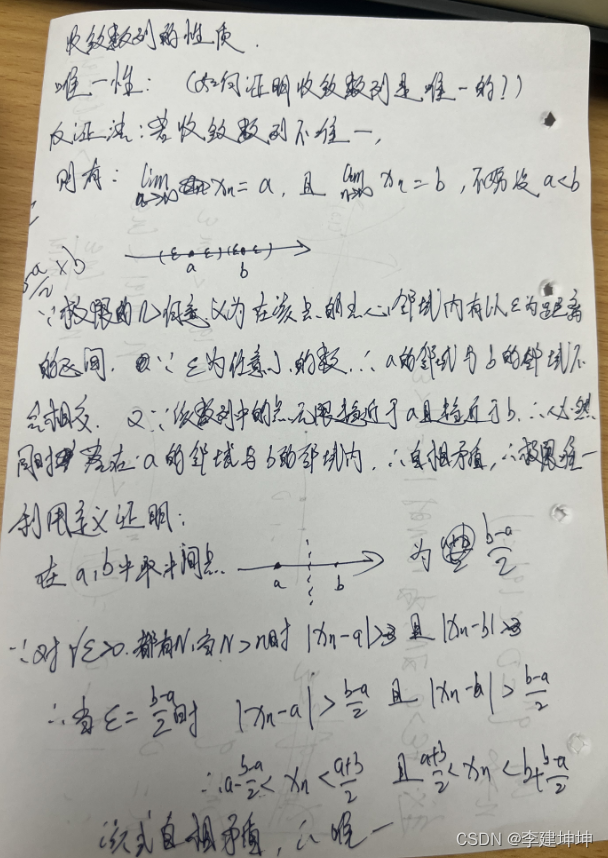 收敛数列的性质.
唯一性: (如何证明收敛数列是唯一的?)
反证法:若收敛数列不唯一,
则有: lim n→∞ xn = a, 且 lim n→∞ xn = b, 不妨设 a<b
(ε ε)(ε ε)
a b
∵极限的几何意义为在该点的去心邻域内有以ε为距离
的区间. ∵ ε为任意小的数, ∴ a的邻域与b的邻域不
会相交. 又∵该数列中的点无限接近于a且接近于b. ∴必然
同时落在a的邻域与b的邻域内, ∴自相矛盾, ∴极限唯一
利用定义证明:
在a,b中取中间点 a b 为 (b-a)/2
∵对∀ε>0. 都有N, 当N>n时 |xn-a|>ε 且 |xn-b|>ε
∴当 ε=(b-a)/2时 |xn-a|>(b-a)/2 且 |xn-b|>(b-a)/2
∴a-(b-a)/2< xn <(a+b)/2 且 (a+b)/2< xn < b+(b-a)/2
该式自相矛盾, ∴唯一
CSDN @李建坤坤